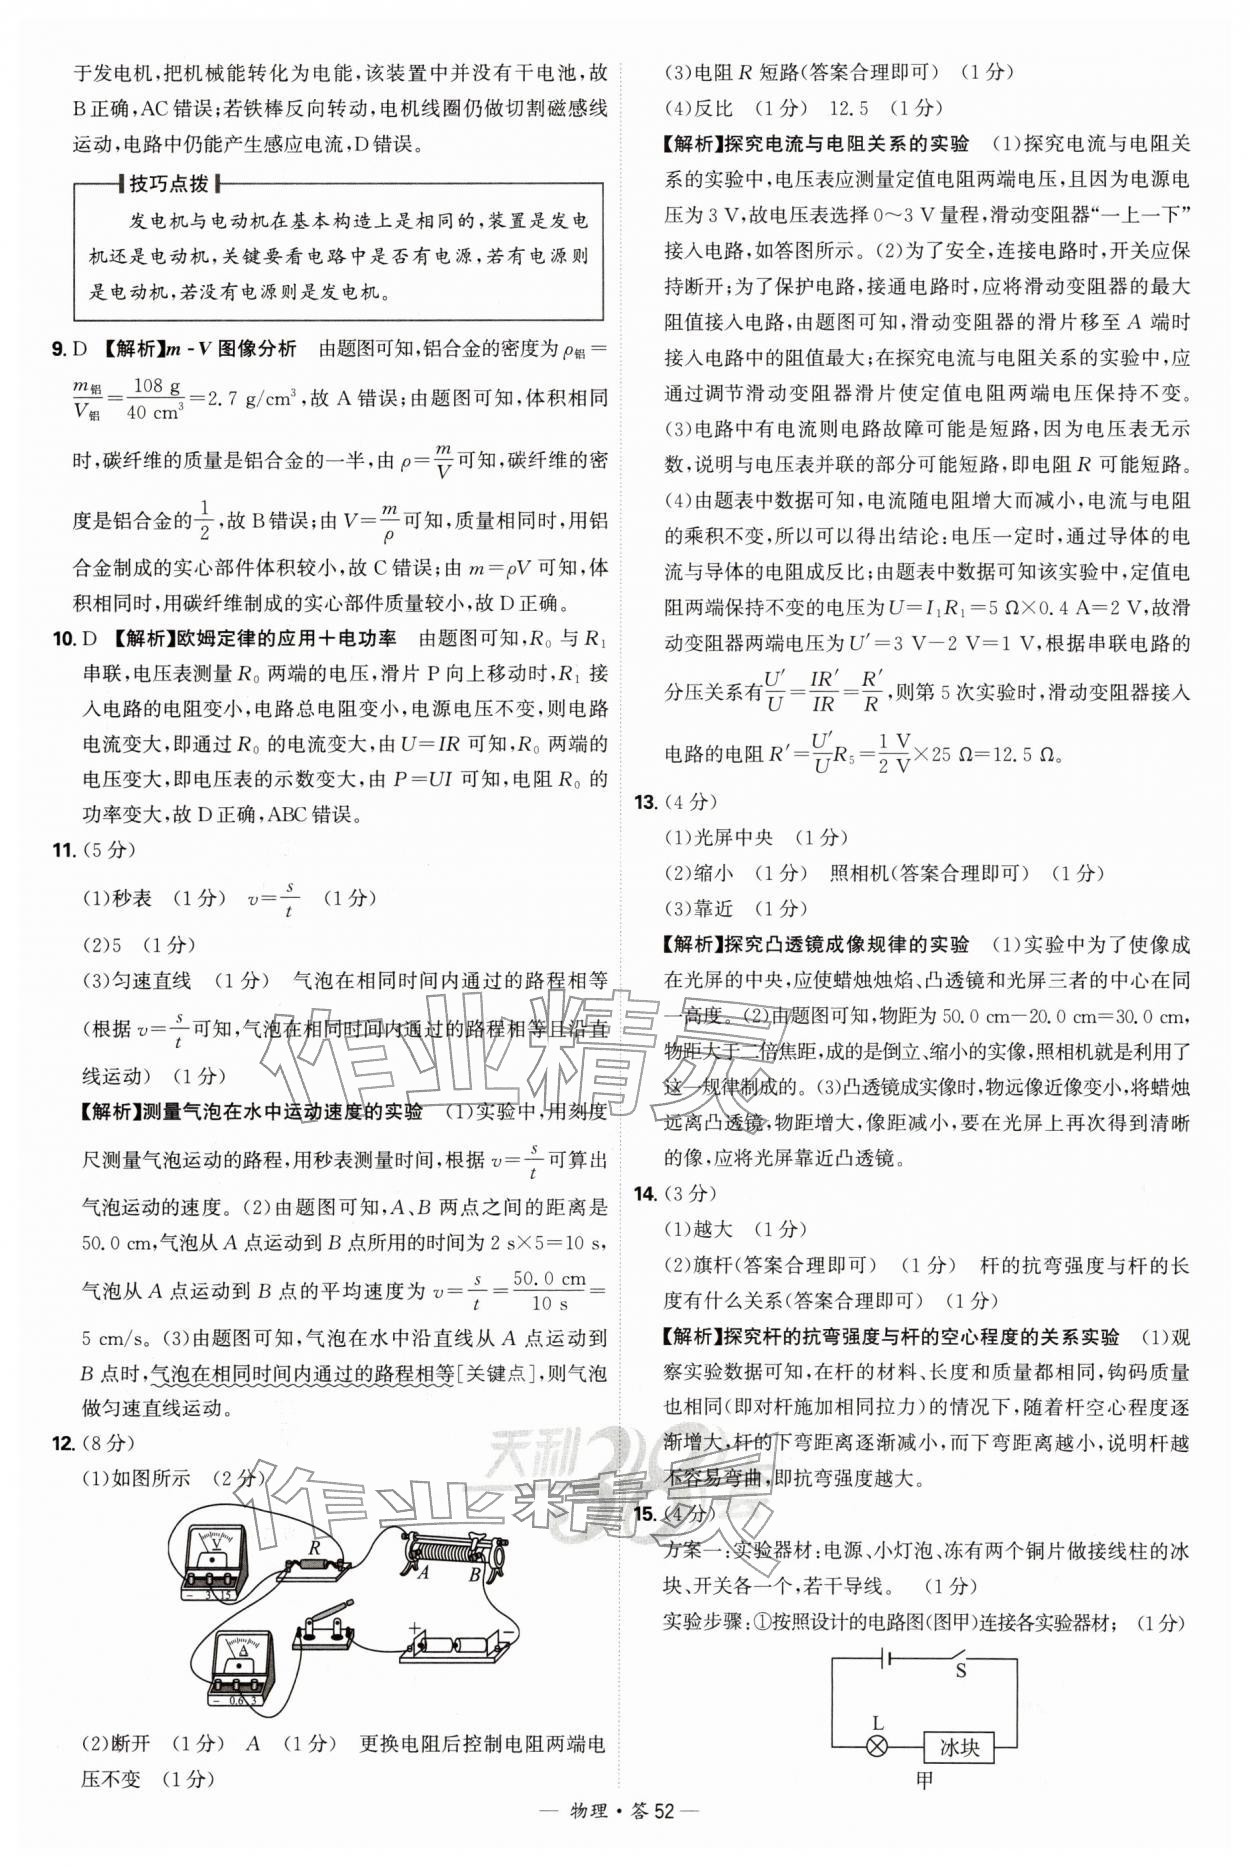 于发电机,把机械能转化为电能,该装置中并没有干电池,故
B正确,AC错误;若铁棒反向转动,电机线圈仍做切割磁感线
运动,电路中仍能产生感应电流,D错误。
技巧点拨
发电机与电动机在基本构造上是相同的,装置是发电
机还是电动机,关键要看电路中是否有电源,若有电源则
是电动机,若没有电源则是发电机。
9. D 【解析】m-V图像分析 由题图可知,铝合金的密度为ρ铝=
m铝/V铝=108 g/40 cm³=2.7 g/cm³,故A错误;由题图可知,体积相同
时,碳纤维的质量是铝合金的一半,由ρ=m/V可知,碳纤维的密
度是铝合金的1/2,故B错误;由V=m/ρ可知,质量相同时,用铝
合金制成的实心部件体积较小,故C错误;由m=ρV可知,体
积相同时,用碳纤维制成的实心部件质量较小,故D正确。
10. D 【解析】欧姆定律的应用+电功率 由题图可知,R₀与R₁
串联,电压表测量R₀两端的电压,滑片P向上移动时,R₁接
入电路的电阻变小,电路总电阻变小,电源电压不变,则电路
电流变大,即通过R₀的电流变大,由U=IR可知,R₀两端的
电压变大,即电压表的示数变大,由P=UI可知,电阻R₀的
功率变大,故D正确,ABC错误。
11. (5分)
(1)秒表 (1分) v=s/t (1分)
(2)5 (1分)
(3)匀速直线 (1分) 气泡在相同时间内通过的路程相等
(根据v=s/t可知,气泡在相同时间内通过的路程相等且沿直
线运动) (1分)
【解析】测量气泡在水中运动速度的实验 (1)实验中,用刻度
尺测量气泡运动的路程,用秒表测量时间,根据v=s/t可算出
气泡运动的速度。(2)由题图可知,A、B两点之间的距离是
50.0 cm,气泡从A点运动到B点所用的时间为2 s×5=10 s,
气泡从A点运动到B点的平均速度为v=s/t=50.0 cm/10 s=
5 cm/s。(3)由题图可知,气泡在水中沿直线从A点运动到
B点时,气泡在相同时间内通过的路程相等[关键点],则气泡
做匀速直线运动。
12. (8分)
(1)如图所示 (2分)
V
- 3 15
R
A B
+ -
A
- 0.6 3
(2)断开 (1分) A (1分) 更换电阻后控制电阻两端电
压不变 (1分)
(3)电阻R短路(答案合理即可) (1分)
(4)反比 (1分) 12.5 (1分)
【解析】探究电流与电阻关系的实验 (1)探究电流与电阻关
系的实验中,电压表应测量定值电阻两端电压,且因为电源电
压为3 V,故电压表选择0～3 V量程,滑动变阻器“一上一下”
接入电路,如答图所示。(2)为了安全,连接电路时,开关应保
持断开;为了保护电路,接通电路时,应将滑动变阻器的最大
阻值接入电路,由题图可知,滑动变阻器的滑片移至A端时
接入电路中的阻值最大;在探究电流与电阻关系的实验中,应
通过调节滑动变阻器滑片使定值电阻两端电压保持不变。
(3)电路中有电流则电路故障可能是短路,因为电压表无示
数,说明与电压表并联的部分可能短路,即电阻R可能短路。
(4)由题表中数据可知,电流随电阻增大而减小,电流与电阻
的乘积不变,所以可以得出结论:电压一定时,通过导体的电
流与导体的电阻成反比;由题表中数据可知该实验中,定值电
阻两端保持不变的电压为U=I₁R₁=5 Ω×0.4 A=2 V,故滑
动变阻器两端电压为U′=3 V-2 V=1 V,根据串联电路的
分压关系有U′/U=IR′/IR=R′/R,则第5次实验时,滑动变阻器接入
电路的电阻R′=U′/U R₅=1 V/2 V×25 Ω=12.5 Ω。
13. (4分)
(1)光屏中央 (1分)
(2)缩小 (1分) 照相机(答案合理即可) (1分)
(3)靠近 (1分)
【解析】探究凸透镜成像规律的实验 (1)实验中为了使像成
在光屏的中央,应使蜡烛烛焰、凸透镜和光屏三者的中心在同
一高度。(2)由题图可知,物距为50.0 cm-20.0 cm=30.0 cm,
物距大于二倍焦距,成的是倒立、缩小的实像,照相机就是利用了
这一规律制成的。(3)凸透镜成实像时,物远像近像变小,将蜡烛
远离凸透镜,物距增大,像距减小,要在光屏上再次得到清晰
的像,应将光屏靠近凸透镜。
14. (3分)
(1)越大 (1分)
(2)旗杆(答案合理即可) (1分) 杆的抗弯强度与杆的长
度有什么关系(答案合理即可) (1分)
【解析】探究杆的抗弯强度与杆的空心程度的关系实验 (1)观
察实验数据可知,在杆的材料、长度和质量都相同,钩码质量
也相同(即对杆施加相同拉力)的情况下,随着杆空心程度逐
渐增大,杆的下弯距离逐渐减小,而下弯距离越小,说明杆越
不容易弯曲,即抗弯强度越大。
15. (4分)
方案一:实验器材:电源、小灯泡、冻有两个铜片做接线柱的冰
块、开关各一个,若干导线。 (1分)
实验步骤:①按照设计的电路图(图甲)连接各实验器材; (1分)
S
L
冰块
甲
— 物理·答52 —
作业精灵
作业精灵
天利38套